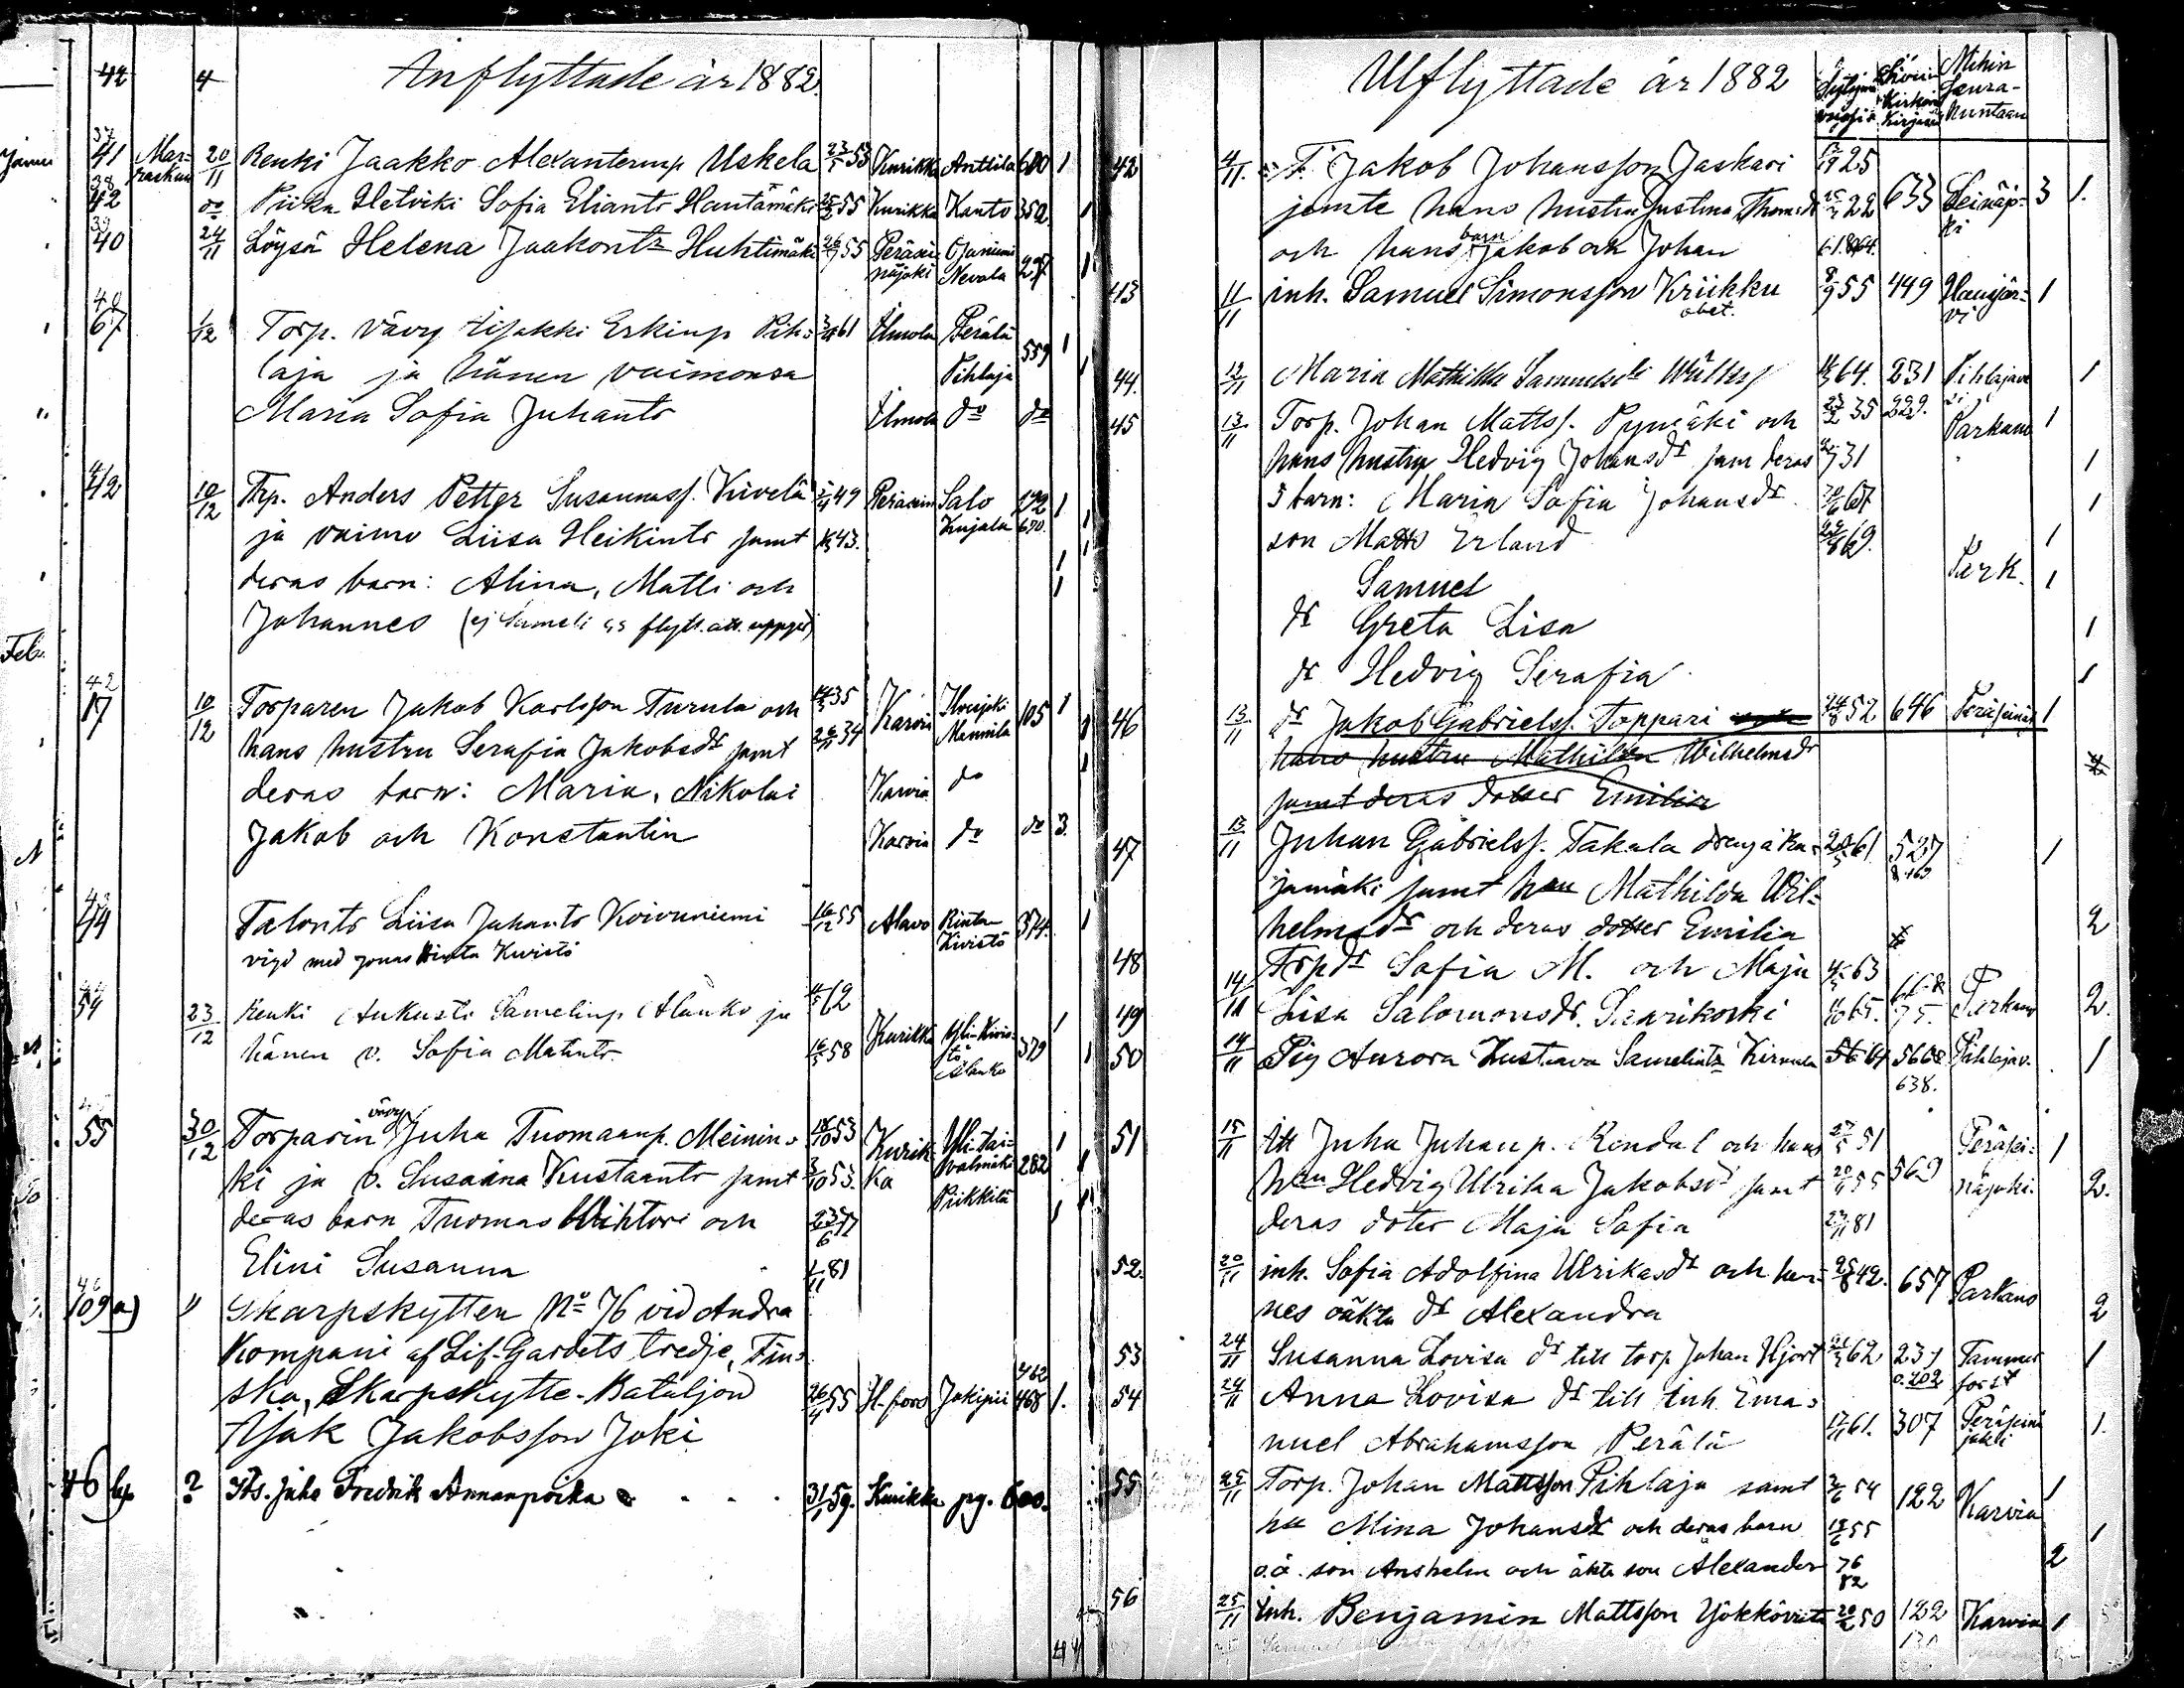 42 4 Anflyttade år 1882.
37
41 Marraskuu 20/11 Renki Jaakko Alexanterinp Uskela 23/5 53 Kurikka Anttila 680 1
38
42 do Piika Hetviki Sofia Eliants Hautämäki 55 Kurikka Kanto 352 1
39
40 24/11 Löysä Helena Jaakontr Huhtimäki 26/7 55 Peräseinäjoki Ojaniemi Nevala 1
40
67 1/12 Torp. vävy Iisakki Erkinp Pih= 61 Ilmola Perälä 559 1
laja ja hänen vaimonsa Pihlaja 1
Maria Sofia Juhants Ilmola do do
42 10/12 Trp. Anders Petter Susannass. Kivelä 49 Peräsein Salo 192 1
ja vaimo Liisa Heikints samt 43. Kujala 670.
deras barn: Alina, Matti och 1
Johannes (ej Sameli flytt. att. uppgid) 1
42
17 10/12 Torparen Jakob Karlsson Turula och 35 Karvia Ilvesjoki Mannila 105 1
hans hustru Serafia Jakobsdr samt 26/11 34 1
deras barn: Maria, Nikolai Karvia do
Jakob och Konstantin Karvia do do 3
44 Talonts Liisa Juhants Koivuniemi 16/12 55 Alavo Rinta-Kivistö 374. 1
vigd med Jonas Rinta Kivistö
54 23/12 Renki Aukusti Samelinp Alanko ja 62 Kurikka Yli-Kivistö Alanko 379 1
hänen v. Sofia Matints. 58 1
55 30/12 Torparin vävy Juha Tuomaanp. Meinin= 18/10 53 Kurikka Yli-taivalmäki 282 1
ki ja v. Susanna Kustaants samt 3/10 53. Piikkilä 1
deras barn Tuomas Wihtori och 23/6 77 1
Elini Susanna 1/11 81
109 a) " Skarpskytten No 76 vid Andra
Kompani af Lif-Gardets tredje, Fin=
ska, Skarpskytte-Bataljon 26/4 55 H-fors Jokipii 462 468 1.
Isak Jakobsson Joki
46 ? Its. Juho Fredrik Annanpoika . . . 31/1 59. Kurikka pg. 600.
Utflyttade år 1882 Syntymä Kirkon Kirjasi Mihin Seurakuntaan
42 4/11. F. Jakob Johansson Jaskari 25 633 Seinäjoki 3 1.
jemte hans hustru Justina Thomsdr 22
och hans barn Jakob och Johan
43 11/11 inh. Samuel Simonsson Kriikku 8/9 55 449 Hausjärvi 1
obet.
44. 12/11 Maria Mathilda Samuelsdr 64. 231 Pihlajavesi 1
45 13/11 Torp. Johan Mattss. Pymäki och 23/2 35 229. Parkano 1
hans hustru Hedvig Johansdr sam deras 31 1
5 barn: Maria Sofia Johansdr 67 1
son Matts Erland 69. 1
Samuel Park. 1
dr Greta Lisa 1
dr Hedvig Serafia 1
46 13/11 dr Jakob Gabrielss. Toppari 24/8 52 646 Peräseinäj 1
hans hustru Mathilda Wilhelmsdr
samt deras dotter Emilia
47 13/11 Juhan Gabrielss. Takala dreng i Ku= 61 527 1
jamäki samt hu Mathilda Wil=
helmsdr och deras dotter Emilia 2
48 14/11 Trpdr Sofia M. och Maja 63
49 Lisa Salomonsdr. Saarikoski 65. 75. Parkano 2.
50 14/11 Pig Aurora Kustaava Samelintr Kirmula 64 566 Pihlajav. 1
638.
51 15/11 Itt Juha Juhanp. Rendal och hans 27/5 51 569 Peräseinäjoki. 1
hu Hedvig Ulrika Jakobsdr samt 55 2.
deras doter Maja Sofia 81
52. 20/11 inh. Sofia Adolfina Ulrikasdr och hen= 25/8 42. 657 Parkano
nes oäkta dr Alexandra 2
53 24/11 Susanna Lovisa dr till torp Johan Hjort 62 237 o. 202 Tammerforst 1
54 24/11 Anna Lovisa dr till Inh. Ema=
nuel Abrahamsson Perälä 61. 307 Peräseinäjokki 1.
55 25/11 Torp. Johan Mattsson Pihlaja samt 54 122 Karvia 1
hu Mina Johansdr och deras barn 55 1
o.ä. son Anshelm och äkta son Alexander 76 82 2
56 25/11 Inh. Benjamin Mattsson 50 122 Karvia 1